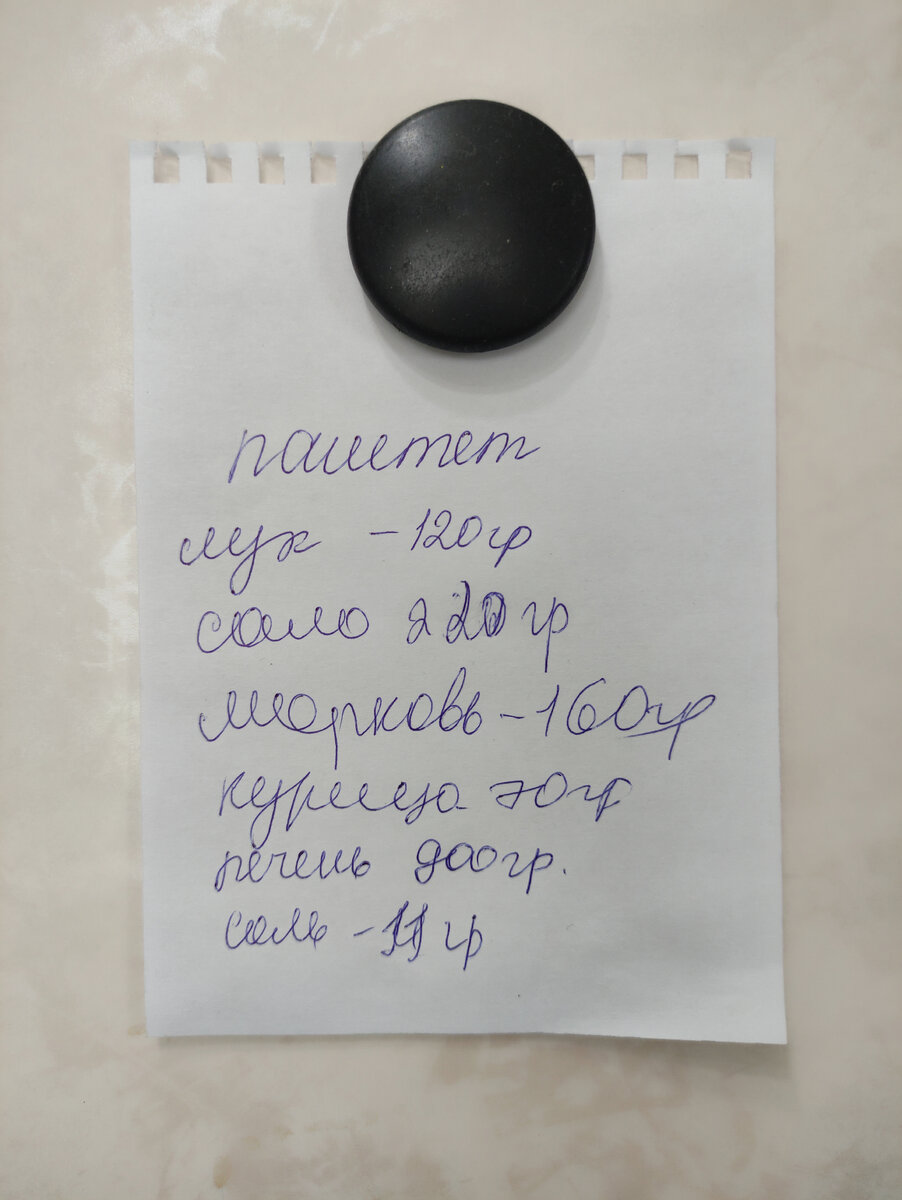 паштет
лук - 120 гр
сало 220 гр
морковь - 160 гр
курица 70 гр
печень 900 гр.
соль - 11 гр